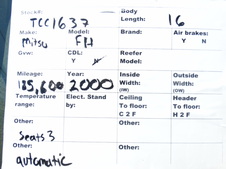 Stock#: Body
TCC1637 Length: 16
Make: Model: Brand: Air brakes:
Mitsu FH Y N
Gvw: CDL: Reefer
Y N Model:
Mileage: Year: Inside Outside
185,600 2000 Width: Width:
(ow) (ow)
Temperature Elect. Stand Ceiling Header
range: by: To floor: To floor:
C 2 F H 2 F
Other: Other:
Seats 3
Other: Other:
automatic